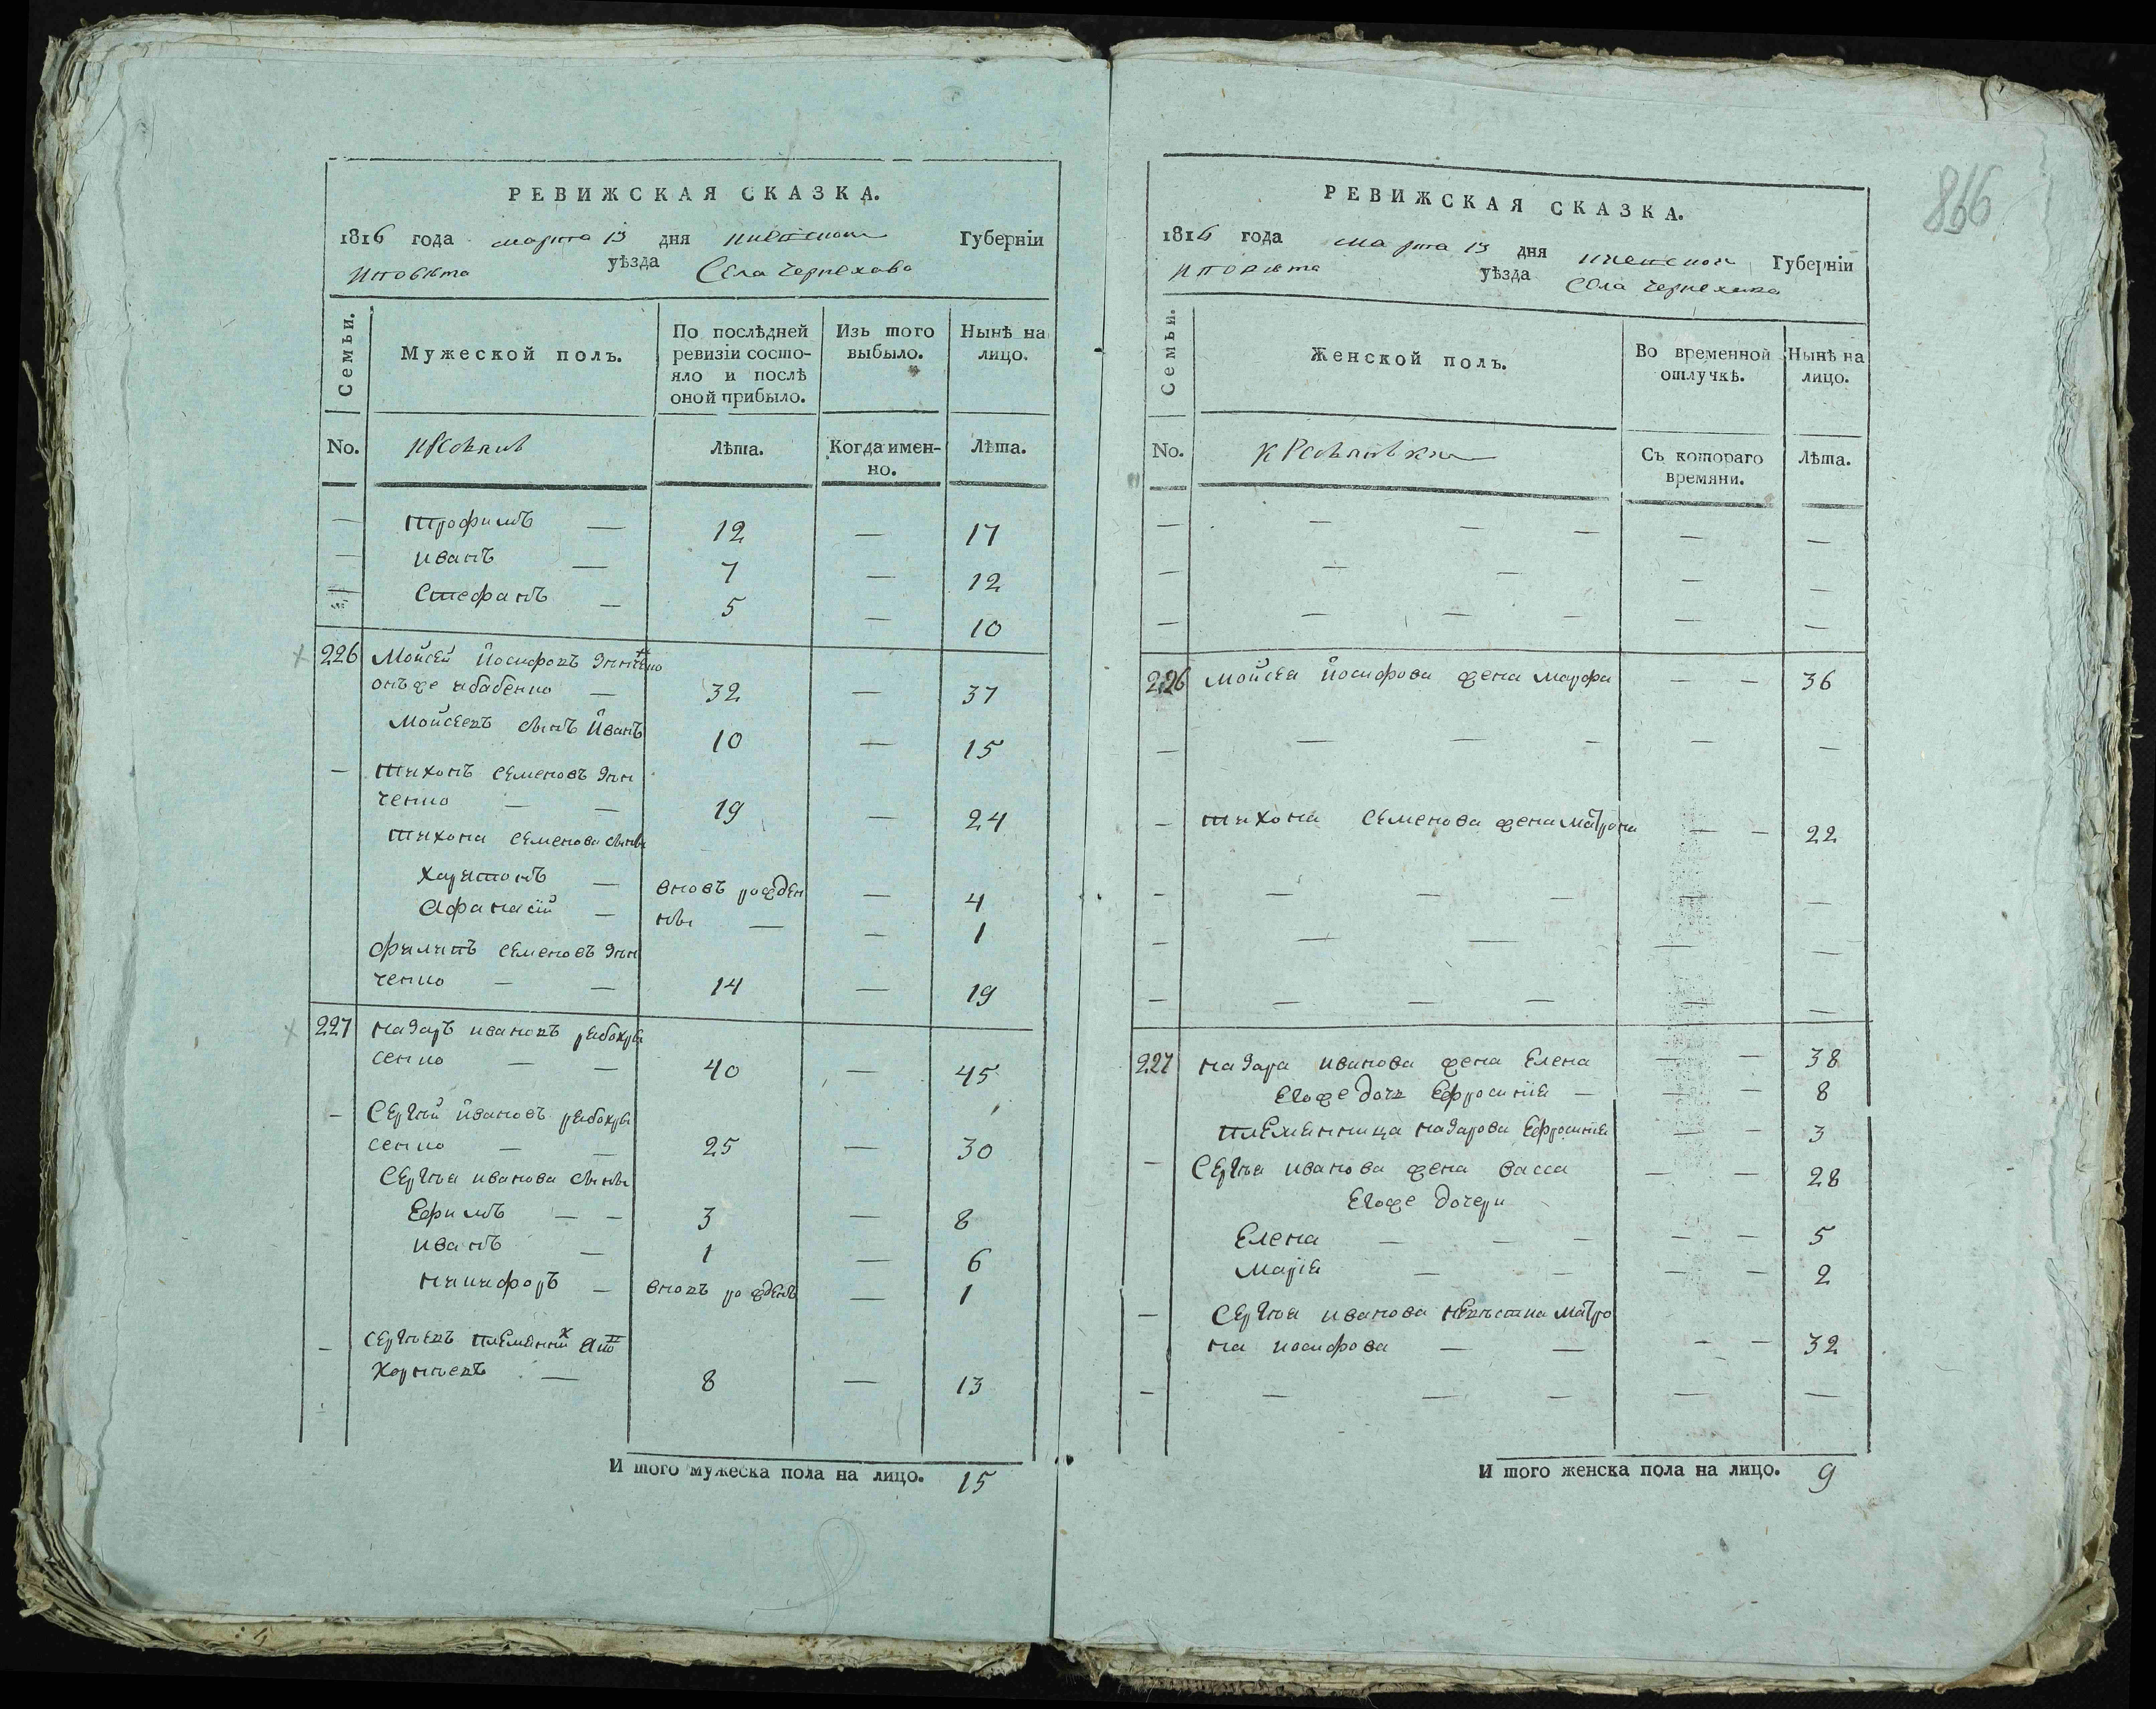 РЕВИЖСКАЯ СКАЗКА.
1816 года марта 13 дня Киевской Губерніи
уѣзда Села Черпехова
Семьи.
Мужеской полъ.
По послѣдней
ревизіи состо-
яло и послѣ
оной прибыло.
Изъ того
выбыло.
Нынѣ на
лицо.
No.
Лѣта.
Когда имен-
но.
Лѣта.
— Трофимъ — 12 — 17
— Иванъ — 7 — 12
— Стефанъ — 5 — 10
226 Мойсей Йосифовъ
онъже — 32 — 37
Мойсеевъ сынъ Йванъ 10 — 15
— Тихонъ Семеновъ Зин
ченко — — 19 — 24
Тихона Семенова сыны
Харитонъ — вновь рожден — 4
Афанасій — ны — — 1
Филипъ Семеновъ Зин
ченко — — 14 — 19
227 Назаръ Ивановъ рябокры
сенко — — 40 — 45
— Сергѣй Йвановъ рябокры
сенко — — 25 — 30
Сергѣя Иванова сыны
Ефимъ — — 3 — 8
Иванъ — 1 — 6
Никифоръ — вновь рожденъ — 1
— Сергѣевъ племянник
8 — 13
И того мужеска пола на лицо. 15
866
РЕВИЖСКАЯ СКАЗКА.
1816 года марта 13 дня Киевской Губерніи
уѣзда Села Черпехова
Семьи.
Женской полъ.
Во временной
отлучкѣ.
Нынѣ на
лицо.
No.
Съ котораго
времяни.
Лѣта.
— — — — — —
— — — — —
— — — — — —
226 Мойсея Йосифова жена Марфа — — 36
— — — — — —
— Тихона Семенова жена Матрона — — 22
— — — — — —
— — — — —
— — — — — —
227 Назара Иванова жена Елена — — 38
Егоже дочь Ефросинія — — — 8
племянница Назарова Ефросинія — — 3
— Сергѣя Иванова жена Васса — — 28
Егоже дочери
Елена — — — — — 5
Марія — — — — 2
— Сергѣя Иванова невѣстка Матро
на Иосифова — — — — 32
— — — — — —
И того женска пола на лицо. 9